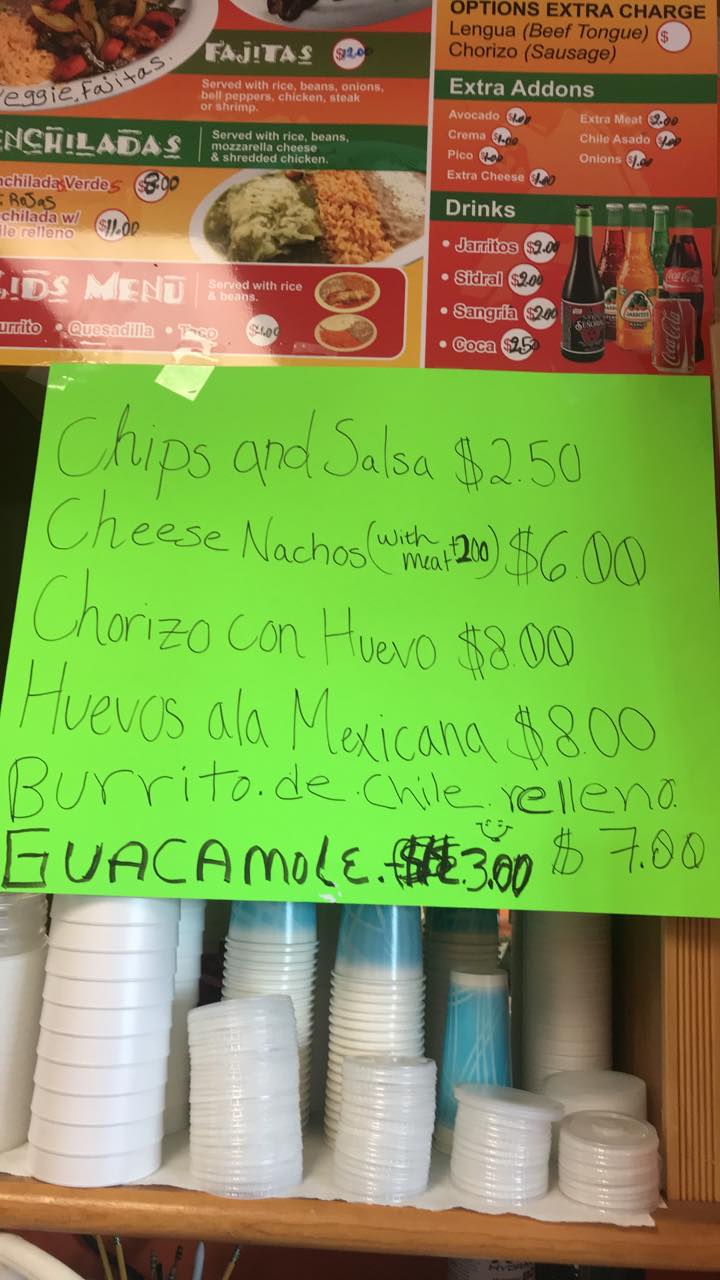 Veggie Fajitas.
FAJITAS $12.00
Served with rice, beans, onions,
bell peppers, chicken, steak
or shrimp.
ENCHILADAS
Served with rice, beans,
mozzarella cheese
& shredded chicken.
nchilada Verdes $8.00
Rojas
chilada w/
ile relleno $11.00
KIDS MENU
Served with rice
& beans.
urrito • Quesadilla • Taco
OPTIONS EXTRA CHARGE
Lengua (Beef Tongue) $
Chorizo (Sausage)
Extra Addons
Avocado $1.00
Crema $1.00
Pico $1.00
Extra Cheese $1.00
Extra Meat $2.00
Chile Asado $1.00
Onions $1.00
Drinks
• Jarritos $2.00
• Sidral $2.00
• Sangría $2.00
• Coca $2.50
SEÑORIAL
JARRITOS
Coca-Cola
Coca-Cola
Chips and Salsa $2.50
Cheese Nachos (with meat +200) $6.00
Chorizo con Huevo $8.00
Huevos ala Mexicana $8.00
Burrito.de.chile.relleno.
$7.00
GUACAMOLE. 3.00